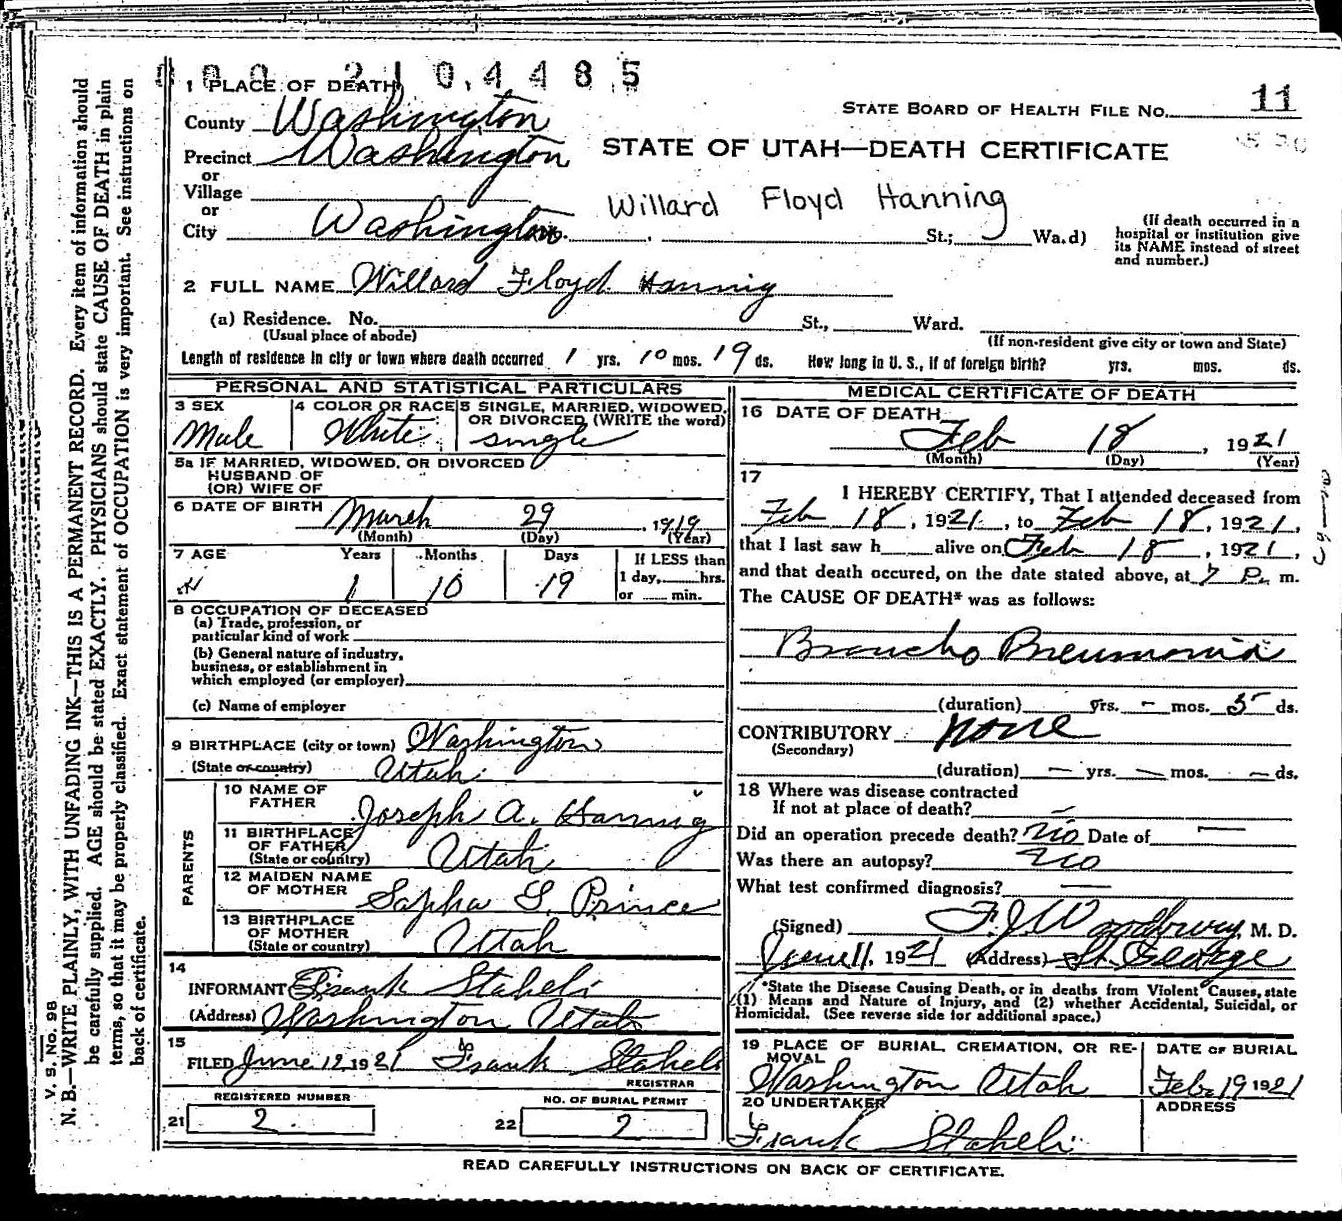 000 210,4485
1 PLACE OF DEATH
STATE BOARD OF HEALTH FILE No. 11
County Washington
Precinct Washington
STATE OF UTAH—DEATH CERTIFICATE
or
Village
Willard Floyd Hanning
or
City Washington St.; Wa.d)
(If death occurred in a
hospital or institution give
its NAME instead of street
and number.)
2 FULL NAME Willard Floyd Hannig
(a) Residence. No. St., Ward.
(Usual place of abode)
(If non-resident give city or town and State)
Length of residence in city or town where death occurred 1 yrs. 10 mos. 19 ds. How long in U. S., if of foreign birth? yrs. mos. ds.
PERSONAL AND STATISTICAL PARTICULARS
3 SEX
Male
4 COLOR OR RACE
White
5 SINGLE, MARRIED, WIDOWED,
OR DIVORCED (WRITE the word)
single
5a IF MARRIED, WIDOWED, OR DIVORCED
HUSBAND OF
(OR) WIFE OF
6 DATE OF BIRTH March 29, 1919
(Month) (Day) (Year)
7 AGE Years Months Days If LESS than
1 10 19 1 day, hrs.
or min.
8 OCCUPATION OF DECEASED
(a) Trade, profession, or
particular kind of work
(b) General nature of industry,
business, or establishment in
which employed (or employer)
(c) Name of employer
9 BIRTHPLACE (city or town) Washington
(State or country) Utah
PARENTS
10 NAME OF
FATHER Joseph A. Hannig
11 BIRTHPLACE
OF FATHER
(State or country) Utah
12 MAIDEN NAME
OF MOTHER Sapha L. Prince
13 BIRTHPLACE
OF MOTHER
(State or country) Utah
14
INFORMANT Frank Staheli
(Address) Washington Utah
15
FILED June 12, 1921 Frank Staheli
REGISTRAR
REGISTERED NUMBER
21 2
NO. OF BURIAL PERMIT
22 2
MEDICAL CERTIFICATE OF DEATH
16 DATE OF DEATH
Feb 18, 1921
(Month) (Day) (Year)
17
I HEREBY CERTIFY, That I attended deceased from
Feb 18, 1921, to Feb 18, 1921,
that I last saw h alive on Feb 18, 1921,
and that death occured, on the date stated above, at 7 P. m.
The CAUSE OF DEATH* was as follows:
Broncho Pneumonia
(duration) yrs. - mos. 5 ds.
CONTRIBUTORY none
(Secondary)
(duration) — yrs. — mos. — ds.
18 Where was disease contracted
If not at place of death? —
Did an operation precede death? No Date of —
Was there an autopsy? No
What test confirmed diagnosis? —
(Signed) F. J. Woodbury, M. D.
June 11, 1921 (Address) St. George
*State the Disease Causing Death, or in deaths from Violent Causes, state
(1) Means and Nature of Injury, and (2) whether Accidental, Suicidal, or
Homicidal. (See reverse side for additional space.)
19 PLACE OF BURIAL, CREMATION, OR RE-
MOVAL
Washington Utah
DATE OF BURIAL
Feb. 19 1921
20 UNDERTAKER
Frank Staheli
ADDRESS
READ CAREFULLY INSTRUCTIONS ON BACK OF CERTIFICATE.
V. S. No. 98
N. B.—WRITE PLAINLY, WITH UNFADING INK—THIS IS A PERMANENT RECORD. Every item of information should
be carefully supplied. AGE should be stated EXACTLY. PHYSICIANS should state CAUSE OF DEATH in plain
terms, so that it may be properly classified. Exact statement of OCCUPATION is very important. See instructions on
back of certificate.